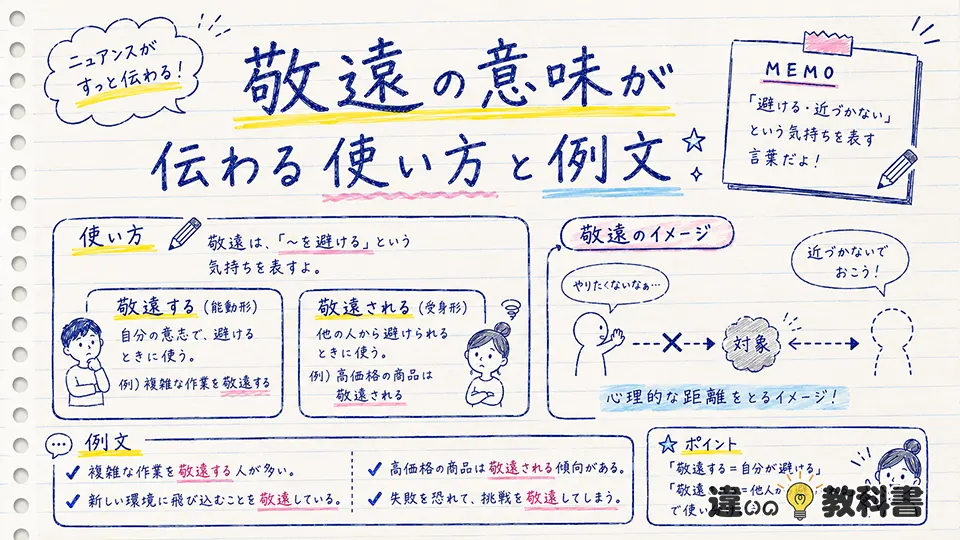 ニュアンスが
すっと伝わる！
敬遠の意味が
伝わる使い方と例文
MEMO
「避ける・近づかない」
という気持ちを表す
言葉だよ！
使い方
敬遠は、「〜を避ける」という
気持ちを表すよ。
敬遠する（能動形）
自分の意志で、避ける
ときに使う。
例）複雑な作業を敬遠する
敬遠される（受身形）
他の人から避けられる
ときに使う。
例）高価格の商品は
敬遠される
敬遠のイメージ
やりたくないなぁ…
近づかないで
おこう！
対象
心理的な距離をとるイメージ！
例文
複雑な作業を敬遠する人が多い。
新しい環境に飛び込むことを敬遠している。
高価格の商品は敬遠される傾向がある。
失敗を恐れて、挑戦を敬遠してしまう。
ポイント
「敬遠する＝自分が避ける」
「敬遠 ＝他人
で使い
違いの教科書